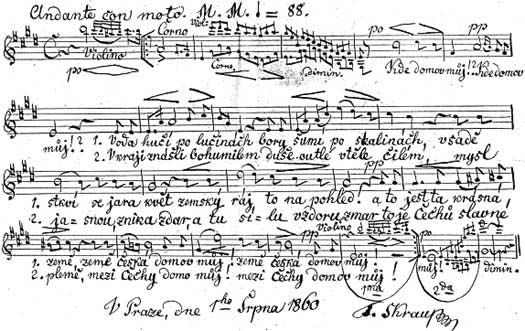 Andante con moto. M. M. ♩ = 88.
Corno Viol:
Violino
po
Corno dimin.
po pp
Kde domov můj!? Kde domov
můj!? 1. Voda hučí po lučinách bory šumí po skalinách, v sadě
2. V kraji znáš-li bohumilém duše outlé v těle čilém, mysl
1. stkví se jara květ zemský ráj to na pohled! a to jest ta krásná,
2. ja=snou, znik a zdar, a tu sí=lu vzdoru zmar to je Čechů slavné
Violino
pp
1. země, země česká domov můj! země česká domov můj!
2. plémě, mezi Čechy domov můj! mezi Čechy domov můj!
1ma
po
můj! dimin.
2da
V Praze, dne 1ho Srpna 1860
F. Škraup